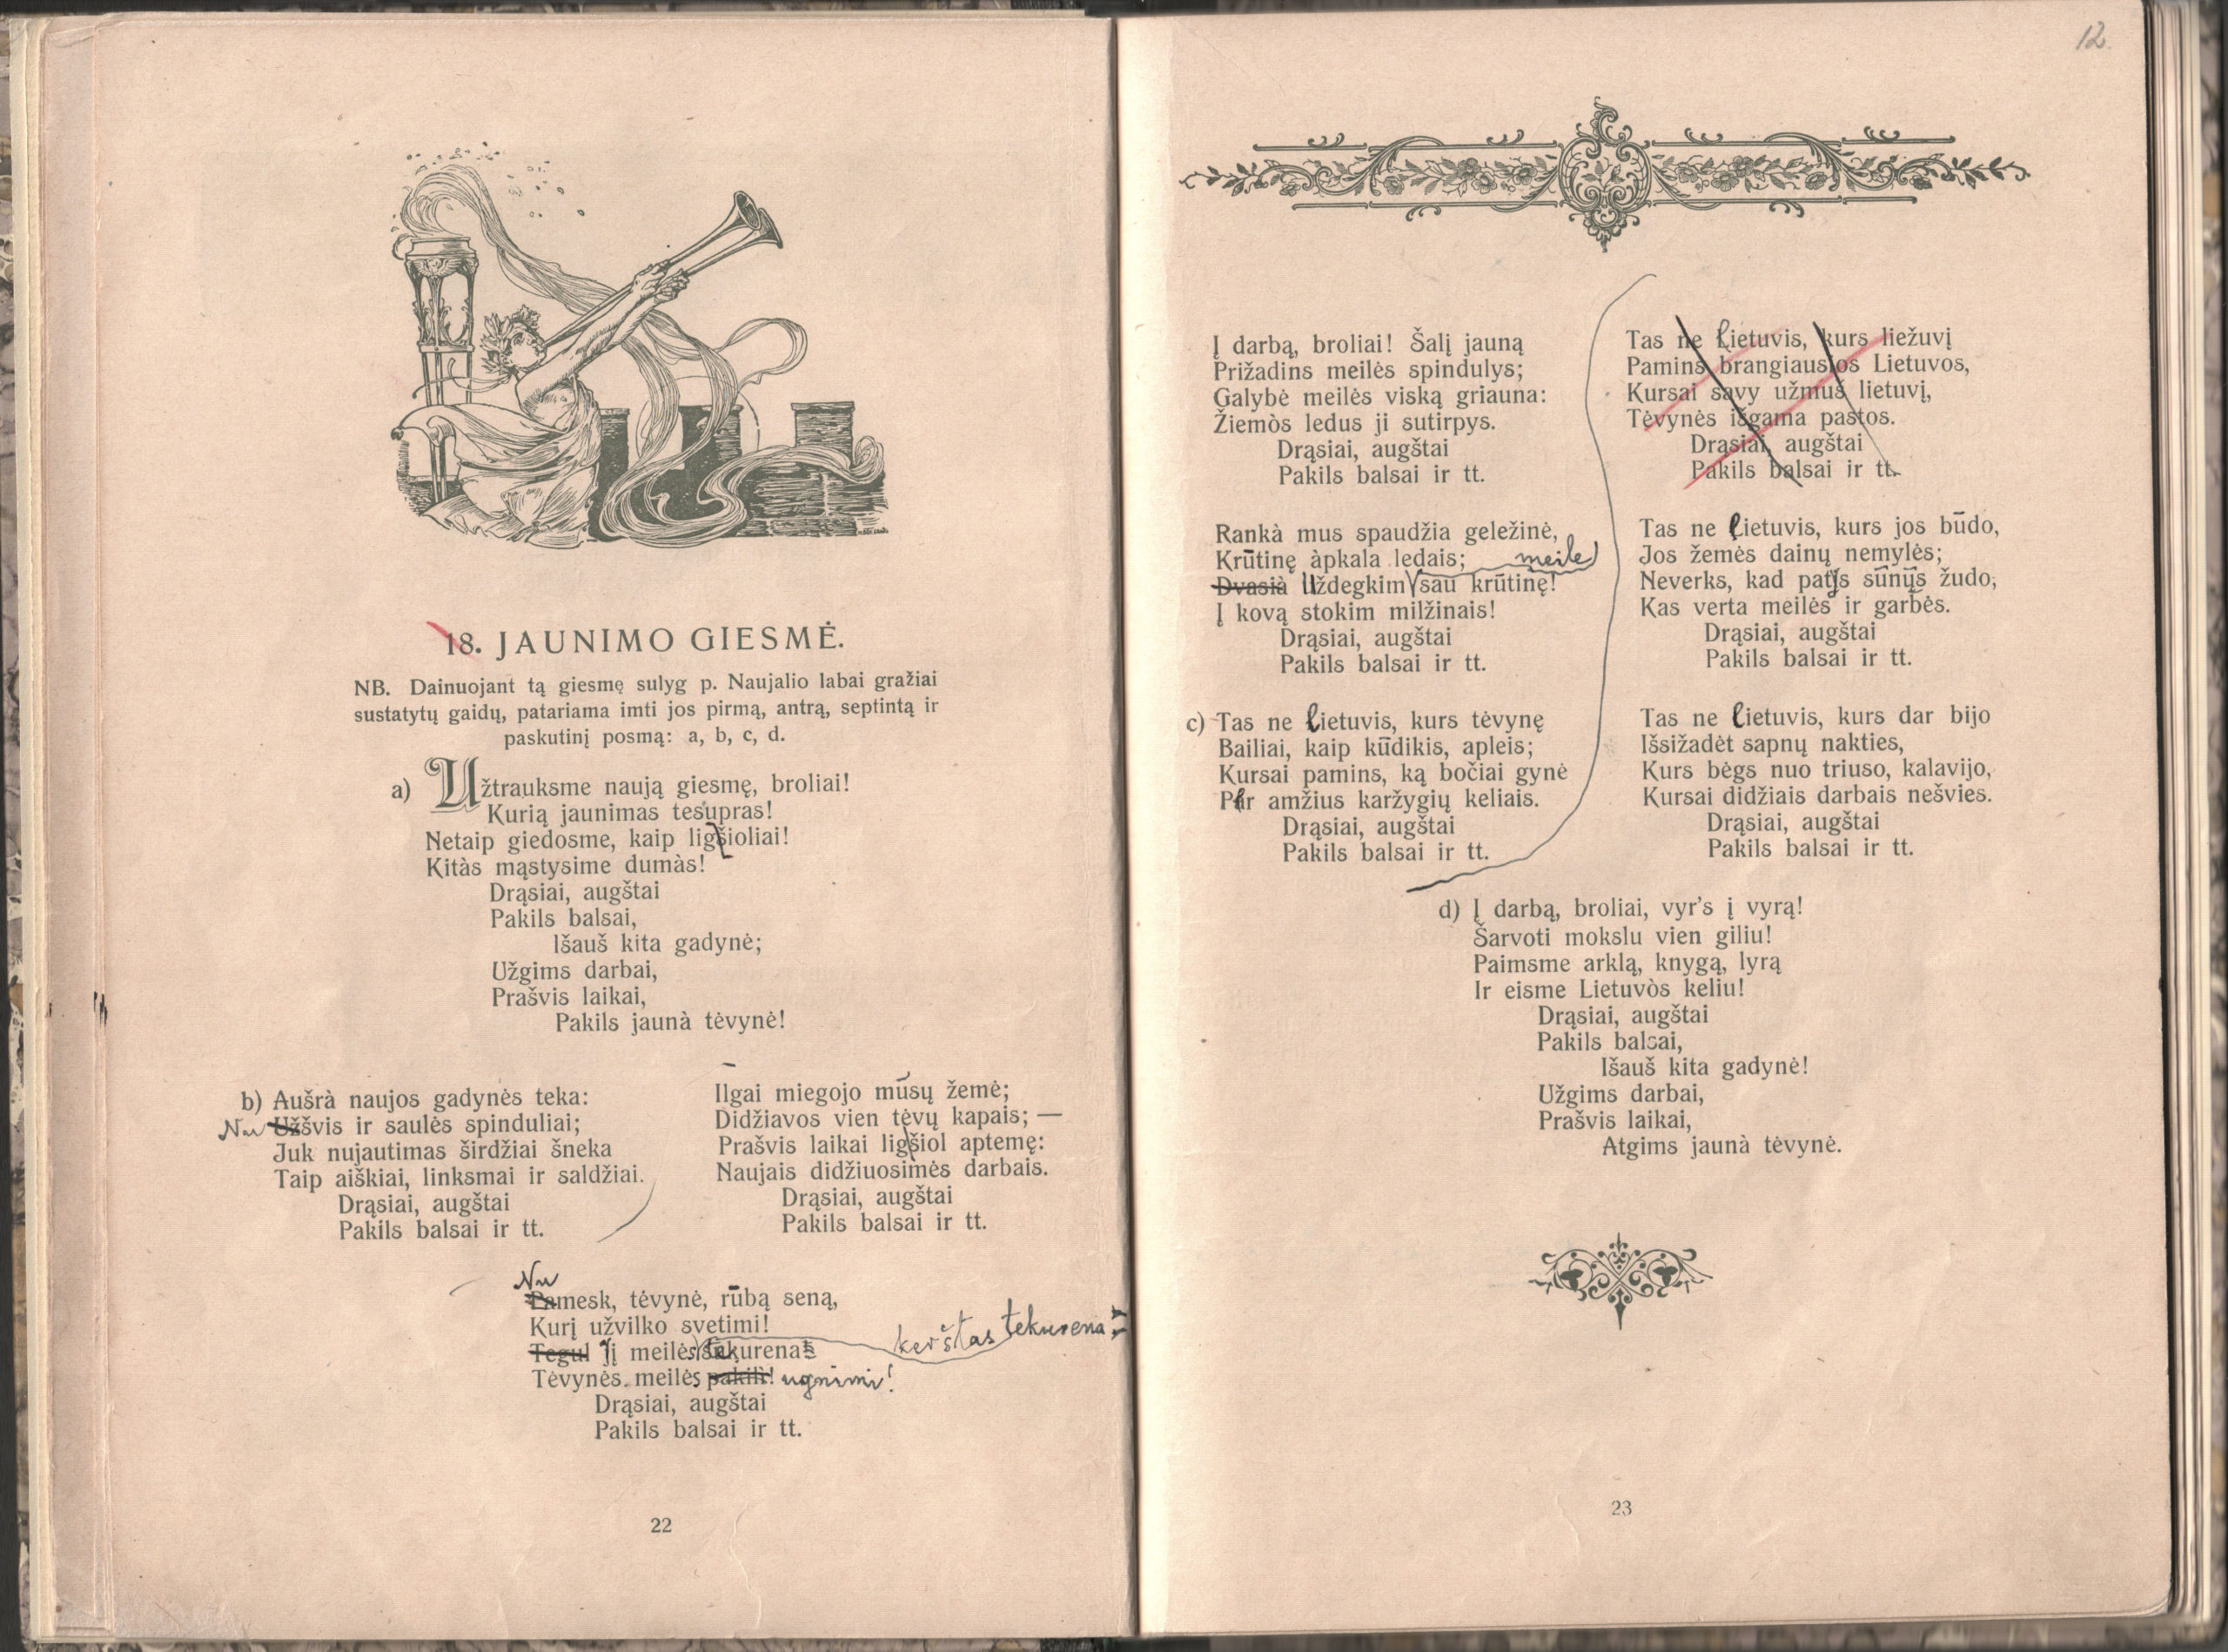 18. JAUNIMO GIESMĖ.
NB. Dainuojant tą giesmę sulyg p. Naujalio labai gražiai
sustatytų gaidų, patariama imti jos pirmą, antrą, septintą ir
paskutinį posmą: a, b, c, d.
a) Užtrauksme naują giesmę, broliai!
Kurią jaunimas tesupras!
Netaip giedosme, kaip ligšioliai!
Kitàs mąstysime dumàs!
Drąsiai, augštai
Pakils balsai,
Išauš kita gadynė;
Užgims darbai,
Prašvis laikai,
Pakils jaunà tėvynė!
b) Aušrà naujos gadynės teka:
Nu Užšvis ir saulės spinduliai;
Juk nujautimas širdžiai šneka
Taip aiškiai, linksmai ir saldžiai.
Drąsiai, augštai
Pakils balsai ir tt.
Ilgai miegojo mūsų žemė;
Didžiavos vien tėvų kapais; —
Prašvis laikai ligšiol aptemę:
Naujais didžiuosimės darbais.
Drąsiai, augštai
Pakils balsai ir tt.
Nu
Pamesk, tėvynė, rūbą seną,
Kurį užvilko svetimi!
Tegul Jį meilės kurena
kerštas tekurena
Tėvynės meilės pakili! ugnimi!
Drąsiai, augštai
Pakils balsai ir tt.
22
12
Į darbą, broliai! Šalį jauną
Prižadins meilės spindulys;
Galybė meilės viską griauna:
Žiemòs ledus ji sutirpys.
Drąsiai, augštai
Pakils balsai ir tt.
Rankà mus spaudžia geležinė,
Krūtinę àpkala ledais;
meile
Dvasià Uždegkim sau krūtinę!
Į kovą stokim milžinais!
Drąsiai, augštai
Pakils balsai ir tt.
c) Tas ne lietuvis, kurs tėvynę
Bailiai, kaip kūdikis, apleis;
Kursai pamins, ką bočiai gynė
Per amžius karžygių keliais.
Drąsiai, augštai
Pakils balsai ir tt.
Tas ne lietuvis, kurs liežuvį
Pamins brangiausios Lietuvos,
Kursai savy užmuš lietuvį,
Tėvynės išgama pastos.
Drąsiai, augštai
Pakils balsai ir tt.
Tas ne lietuvis, kurs jos būdo,
Jos žemės dainų nemylės;
Neverks, kad patįs sūnųs žudo,
Kas verta meilės ir garbės.
Drąsiai, augštai
Pakils balsai ir tt.
Tas ne lietuvis, kurs dar bijo
Išsižadėt sapnų nakties,
Kurs bėgs nuo triuso, kalavijo,
Kursai didžiais darbais nešvies.
Drąsiai, augštai
Pakils balsai ir tt.
d) Į darbą, broliai, vyr's į vyrą!
Šarvoti mokslu vien giliu!
Paimsme arklą, knygą, lyrą
Ir eisme Lietuvòs keliu!
Drąsiai, augštai
Pakils balsai,
Išauš kita gadynė!
Užgims darbai,
Prašvis laikai,
Atgims jaunà tėvynė.
23